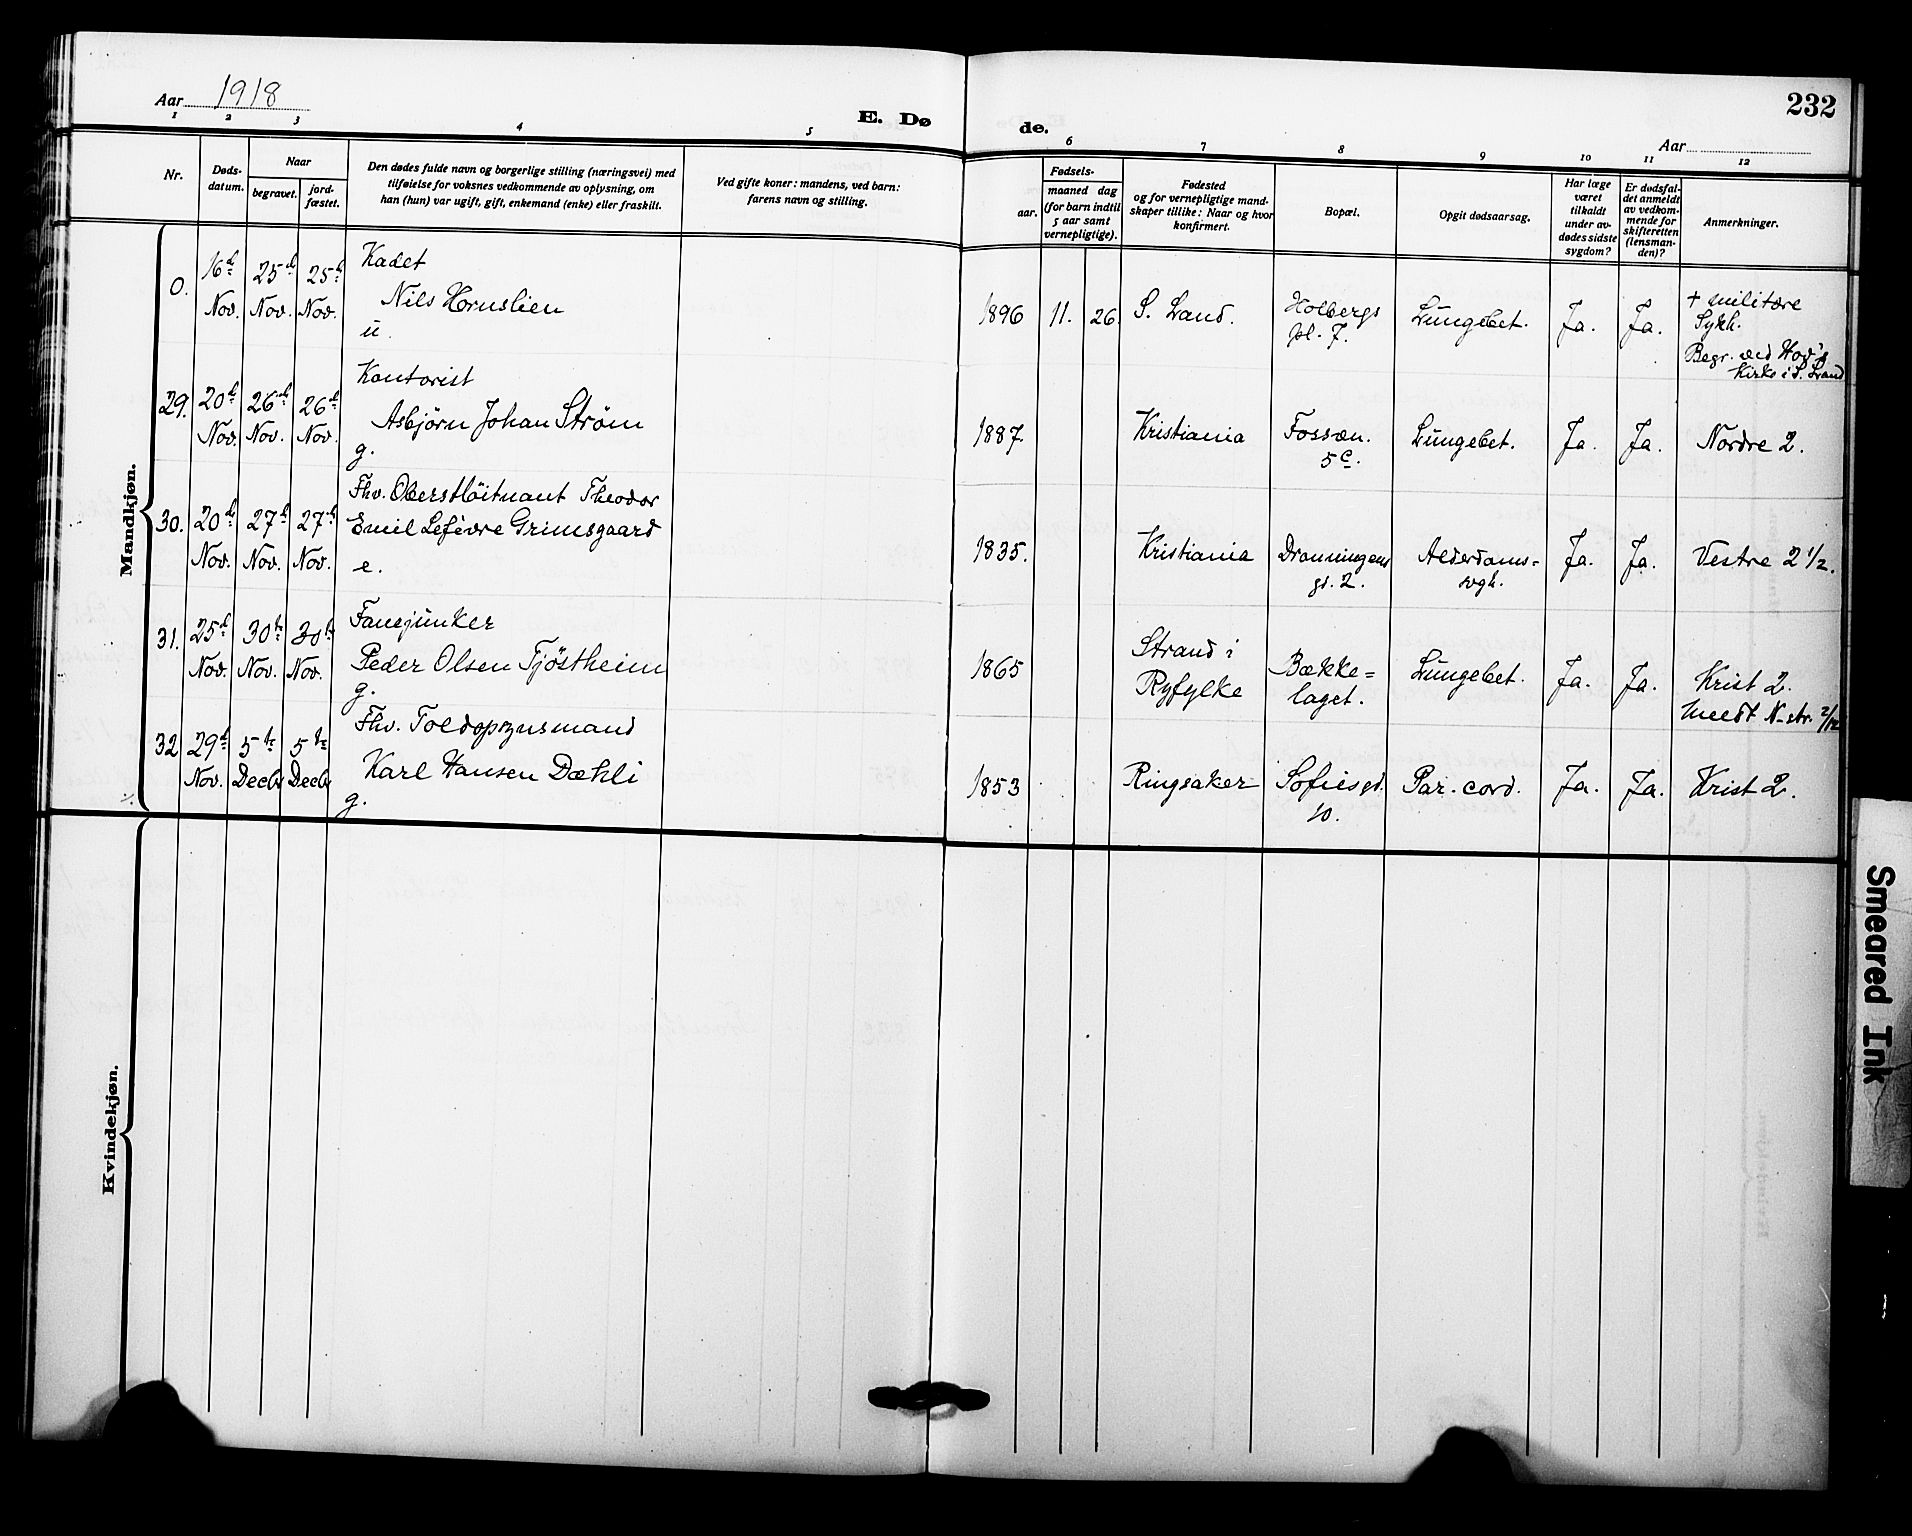 Aar 1918
E. Dø de.
232
Aar
1 2 3 4 5 6 7 8 9 10 11 12
Nr.
Døds-
datum.
Naar
begravet.
jord-
fæstet.
Den dødes fulde navn og borgerlige stilling (næringsvei) med
tilføielse for voksnes vedkommende av oplysning, om
han (hun) var ugift, gift, enkemand (enke) eller fraskilt.
Ved gifte koner: mandens, ved barn:
farens navn og stilling.
Fødsels-
aar.
maaned dag
(for barn indtil
5 aar samt
vernepligtige).
Fødested
og for vernepligtige mand-
skaper tillike: Naar og hvor
konfirmert.
Bopæl.
Opgit dødsaarsag.
Har læge
været
tilkaldt
under av-
dødes sidste
sygdom?
Er dødsfal-
det anmeldt
av vedkom-
mende for
skifteretten
(lensman-
den)?
Anmerkninger.
Mandkjøn.
0. 16d Nov. 25d Nov. 25d Nov.
Kadet
Nils Hornslien
u.
1896 11. 26. S. Land.
Holbergs
pl. 7.
Lungebet. Ja. Ja.
+ militære
Sykh.
Begr. ved Hov's
Kirke i S. Land
29. 20d Nov. 26d Nov. 26d Nov.
Kontorist
Asbjørn Johan Strøm
g.
1887. Kristiania
Fossvn.
5c.
Lungebet. Ja. Ja. Nordre 2.
30. 20d Nov. 27d Nov. 27d Nov.
Fhv. Oberstlöitnant Theodor
Emil Lefèvre Grimsgaard
e.
1835. Kristiania
Dronningens
gd. 2.
Alderdoms-
svgh.
Ja. Ja. Vestre 2 1/2.
31. 25d Nov. 30te Nov. 30te Nov.
Fanejunker
Peder Olsen Tjöstheim
g.
1865
Strand i
Ryfylke
Bække=
laget.
Lungebet. Ja. Ja.
Krist 2.
Meldt N-str. 2/12
32 29d Nov. 5te Decbr 5te Decbr
Fhv. Toldopsynsmand
Karl Hansen Dæhli
g.
1853 Ringsaker
Sofiesgd.
10.
Par. cord. Ja. Ja. Krist 2.
Kvindekjøn.
Smeared Ink